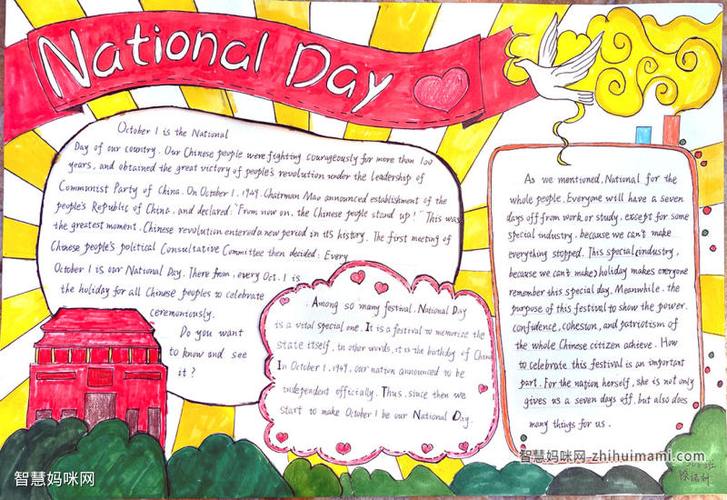 National Day
October 1 is the National
Day of our country. Our Chinese people were fighting courageously for more than 100
years, and obtained the great victory of people's revolution under the leadership of
Communist Party of China. On October 1, 1949. Chairman Mao announced establishment of the
people's Republic of China, and declared: "From now on, the Chinese people stand up!" This was
the greatest moment. Chinese revolution entered a new period in its history. The first meeting of
Chinese people's political Consultative Committee then decided: Every
October 1 is our National Day. There from, every Oct. 1 is
the holiday for all Chinese peoples to celebrate
ceremoniously.
Do you want
to know and see
it?
Among so many festival. National Day
is a vital special one. It is a festival to memorize the
state itself, in other words, it is the birthday of China
In October 1, 1949, our nation announced to be
independent officially. Thus, since then we
start to make October 1 be our National Day.
As we mentioned, National for the
whole people. Everyone will have a seven
days off from work or study, except for some
special industry, because we can't make
everything stopped. This special industry,
because we can't make holiday makes everyone
remember this special day. Meanwhile, the
purpose of this festival to show the power,
confidence, cohesion, and patriotism of
the whole Chinese citizen achieve. How
to celebrate this festival is an important
part. For the nation herself, she is not only
gives us a seven days off, but also does
many things for us.
智慧妈咪网-zhihuimami.com
智慧妈咪网